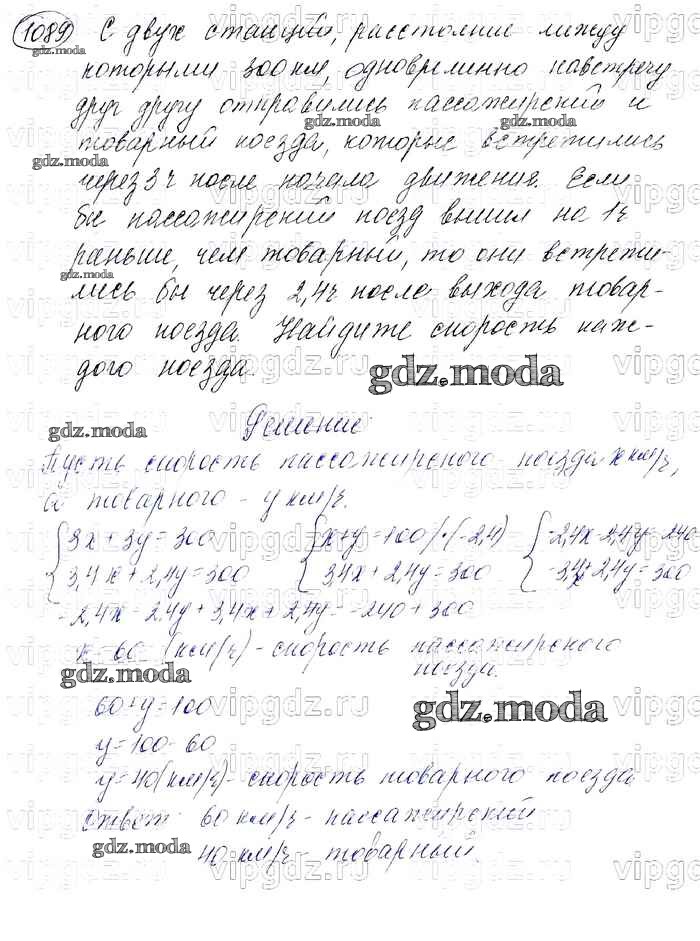 1089 С двух станций, расстояние между
gdz.moda
которыми 300 км, одновременно навстречу
друг другу отправились пассажирский и
gdz.moda gdz.moda
товарный поезда, которые встретились
gdz.moda
через 3 ч после начала движения. Если
бы пассажирский поезд вышел на 1 ч
раньше, чем товарный, то они встрети-
gdz.moda
лись бы через 2,4 ч после выхода товар-
ного поезда. Найдите скорость каж-
дого поезда.
gdz.moda
gdz.moda
Решение
Пусть скорость пассажирского поезда x км/ч,
а товарного - y км/ч.
{3x + 3y = 300 {x+y=100 /·(-2,4) {-2,4x-2,4y=-240
{3,4x + 2,4y = 300 {3,4x + 2,4y = 300 {3,4x+2,4y = 300
-2,4x - 2,4y + 3,4x + 2,4y = -240 + 300
x = 60 (км/ч) - скорость пассажирского
поезда.
gdz.moda
60+y=100
gdz.moda
y=100-60
y=40(км/ч) - скорость товарного поезда
Ответ: 60 км/ч - пассажирский
gdz.moda
40 км/ч - товарный.
vipgdz.ru